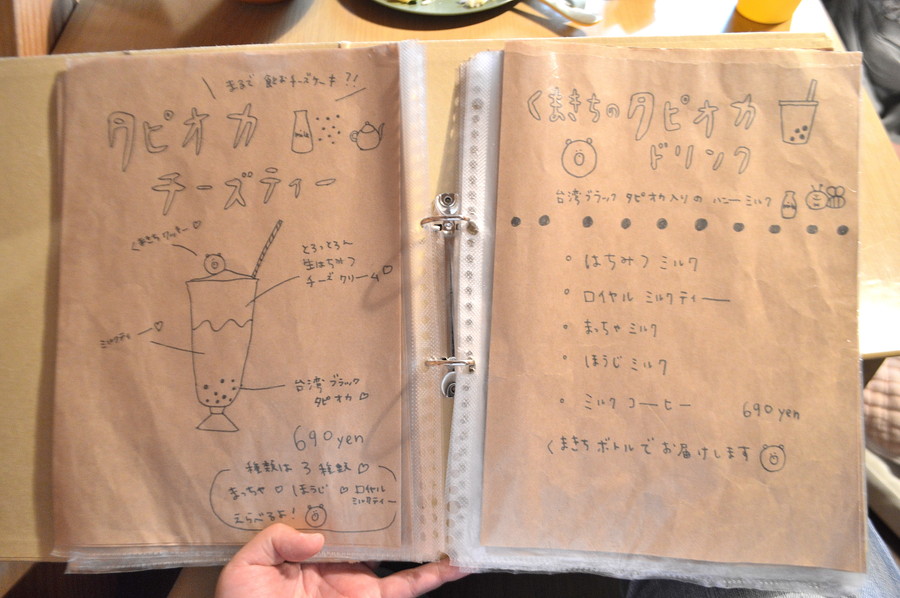 まるで 飲むチーズケーキ?!
タピオカ
milk
チーズティー
くまきちクッキー♡
とろっとろん
生はちみつ
チーズクリーム♡
ミルクティ♡
台湾ブラック
タピオカ♡
690yen
種類は 3種類♡
まっちゃ♡ほうじ♡ロイヤル
ミルクティー
えらべるよ!
くまきちのタピオカ
ドリンク
台湾ブラック タピオカ入りの ハニーミルク
milk
• はちみつ ミルク
• ロイヤル ミルクティー
• まっちゃ ミルク
• ほうじ ミルク
• ミルク コーヒー 690yen
くまきち ボトルでお届けします